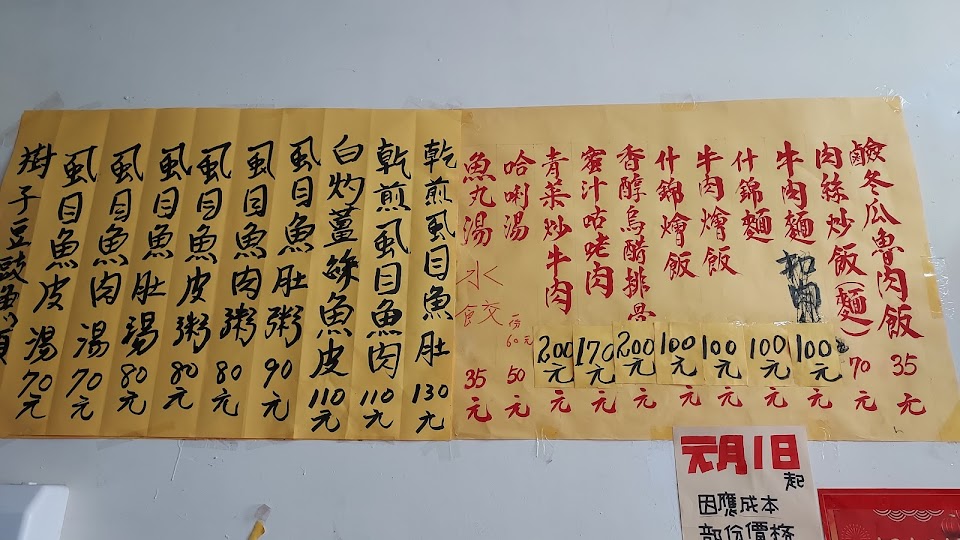 鹼冬瓜魯肉飯 35元
肉絲炒飯(麵) 70元
牛肉麵 100元 元
什錦麵 100元 元
牛肉燴飯 100元 元
什錦燴飯 100元 元
香醇烏醋排骨 200元 元
蜜汁咕咾肉 170元 元
青菜炒牛肉 200元 元
哈喇湯 50元
魚丸湯 35元
水餃 60元
乾煎虱目魚肚 130元
乾煎虱目魚肉 110元
白灼薑絲魚皮 110元
虱目魚肚粥 90元
虱目魚肉粥 80元
虱目魚皮粥 80元
虱目魚肚湯 80元
虱目魚肉湯 70元
虱目魚皮湯 70元
樹子豆豉魚頭
元月1日
起
因應成本
部份價格